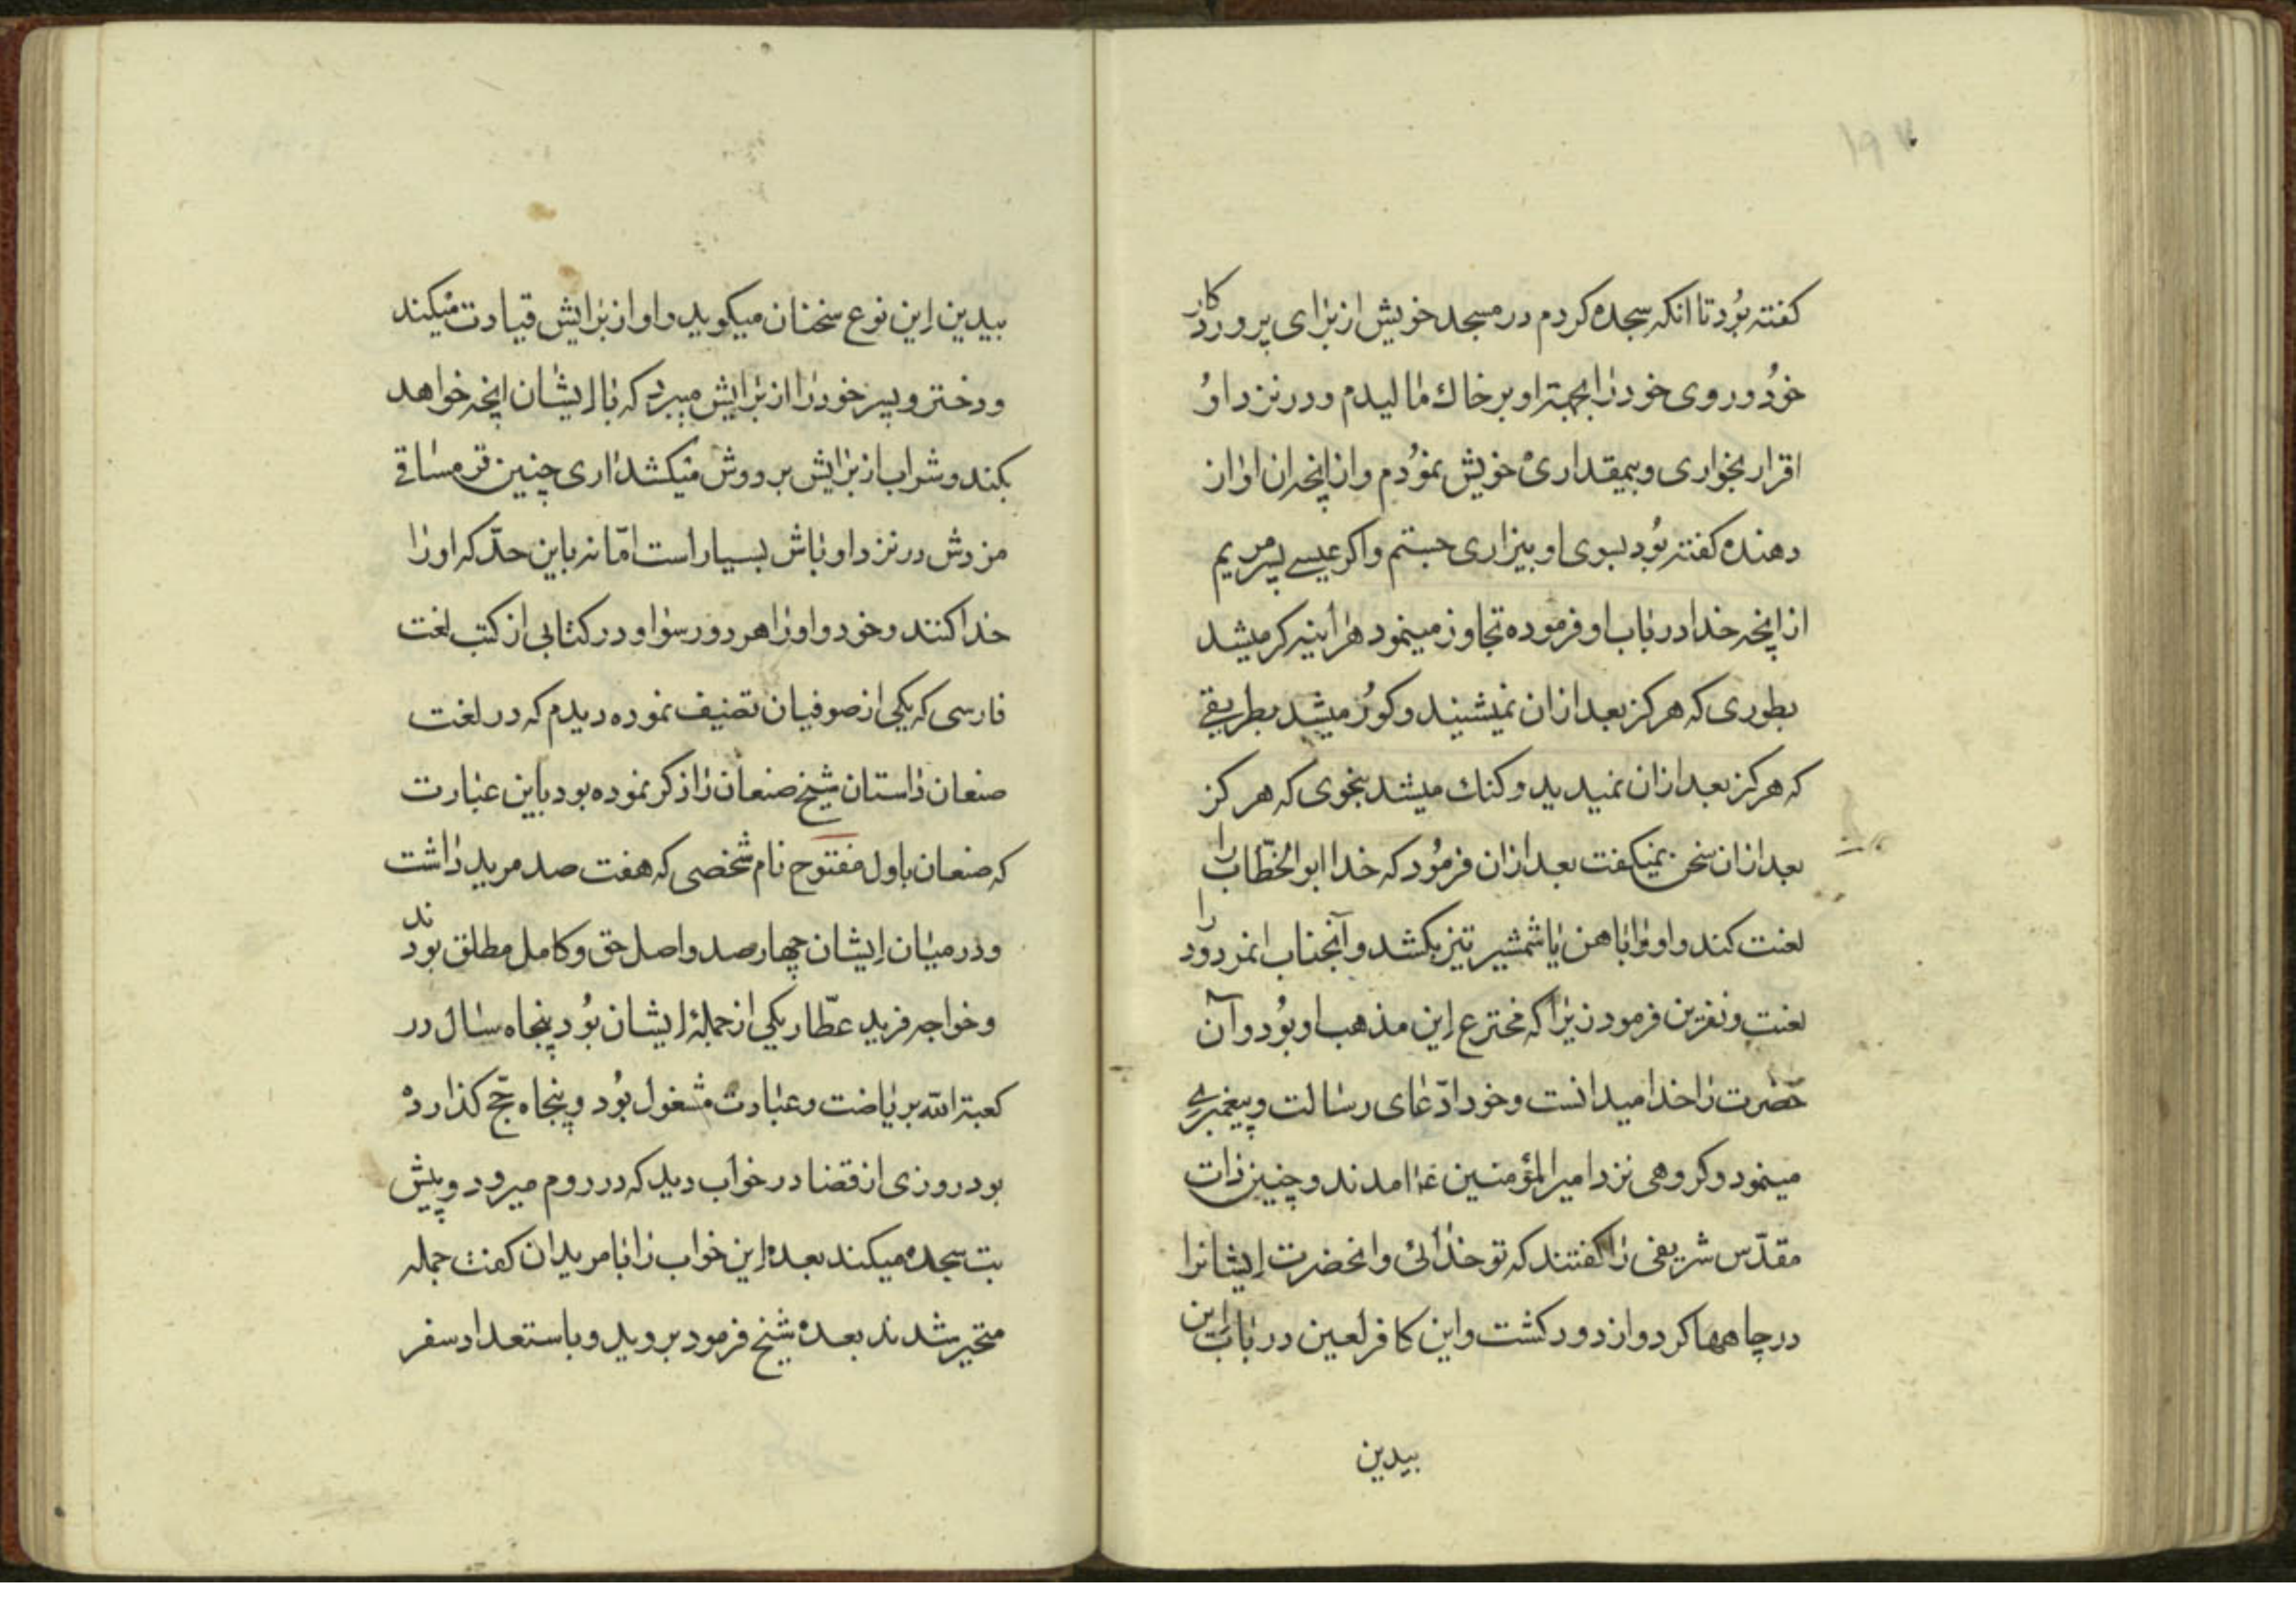 ۱۹۷
کفته بُود تا انکه سجده کردم در مسجد خویش از برای پروردکار
خُود و روی خود را بجهة او بر خاك مالیدم و در نزد او
اقرار بخواری و بیمقداری خویش نمُودم و از انچه ان اواز
دهنده کفته بُود بسوی او بیزاری جستم و اکر عیسے پسر مریم
از انچه خدا در باب او فرموده تجاوز مینمود هر اینه کر میشد
بطوری که هرکز بعد از ان نمیشیند و کور میشد بطریقے
که هرکز بعد از ان نمیدید و کنك میشد بنحوی که هرکز
بعد از ان سخن نمیکفت بعد از ان فرمُود که خدا ابو الخطّاب را
لعنت کند و او را باهن یا شمشیر تیز بکشد و آنجناب انمردود را
لعنت و نفرین فرمود زیرا که مخترع اِین مذهب او بُود و آن
حضرت را خدا میدانست و خود ادّعای رسالت و پیغمبرے
مینمود و کروهی نزد امیر المؤمنین ع امدند و چنین ذات
مقدّس شریفی را کفتند که تو خدائی و انحضرت اِیشانرا
در چاهها کرد و از دود کشت و این کافر لعین در باب اِین
بیدین
بیدین اِین نوع سخنان میکوید و او از برایش قیادت میکند
و دختر و پسر خود را از برایش میبرد که با اِیشان انچه خواهد
بکند و شراب از برایش بر دوش میکشد اری چنین قرمساقے
مزدش در نزد اوباش بسیار است امّا نه باین حدّ که او را
خدا کنند و خود و او را هر دو رسوا و در کتابی از کتب لغت
فارسی که یکی از صوفیان تصنیف نموده دیدم که در لغت
صنعان داستان شیخ صنعان را ذکر نموده بود باین عبارت
که صنعان باول مفتوح نام شخصی که هفت صد مرید داشت
و در میان اِیشان چهار صد واصل حق و کامل مطلق بودند
و خواجه فرید عطّار یکی از جملۀ اِیشان بُود پنجاه سال در
کعبة الله بریاضت و عبادت مشغول بُود و پنجاه حجّ کذارده
بود روزی از قضا در خواب دید که در روم میرود و پیش
بت سجده میکند بعده اِین خواب را با مریدان کفت جمله
متحیر شدند بعده شیخ فرمود بروید و باستعداد سفر